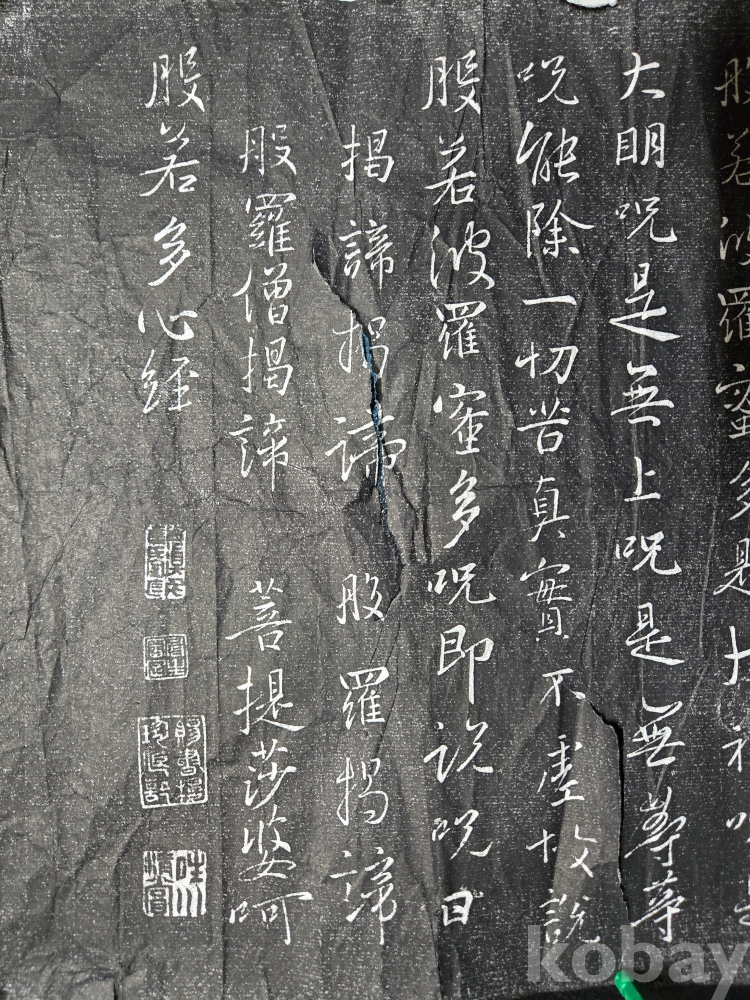 般若波羅蜜多是大神呪是
大明呪是無上呪是無等等
呪能除一切苦真實不虛故說
般若波羅蜜多呪即説呪曰
揭諦揭諦 般羅揭諦
般羅僧揭諦 菩提莎婆呵
般若多心經
kobay